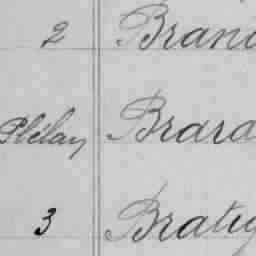 2 Brand
Plélan Brara
3 Bratig